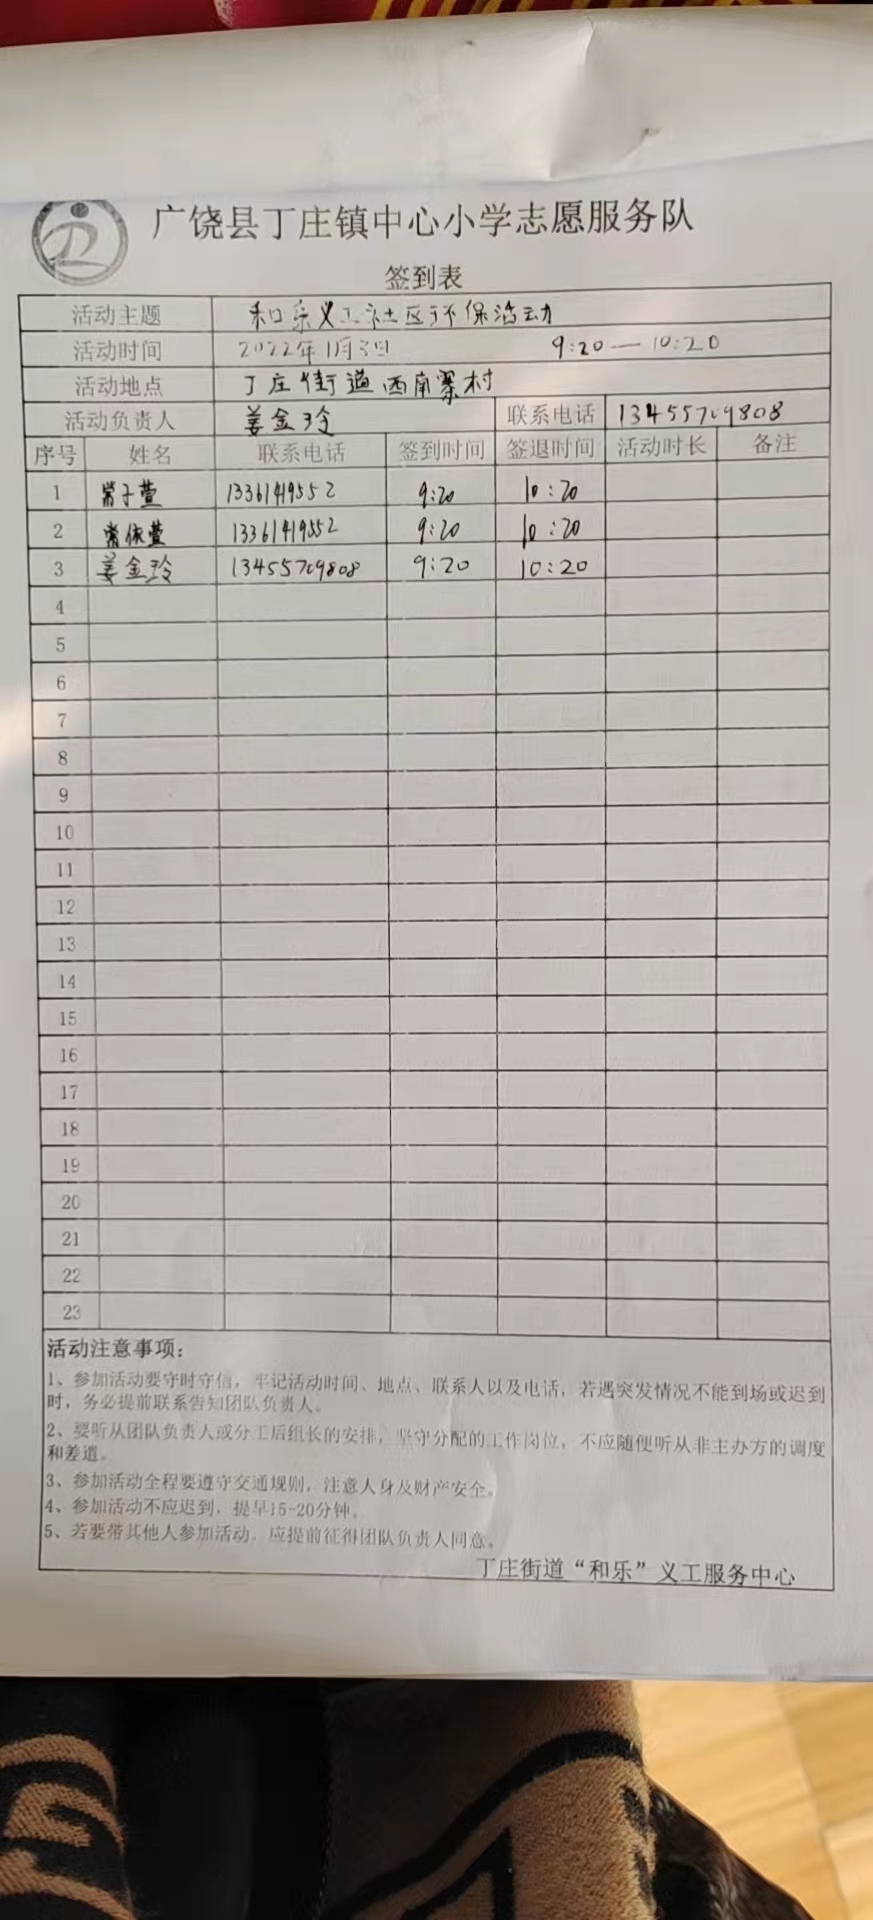 广饶县丁庄镇中心小学志愿服务队
签到表
活动主题 和乐义工社区环保活动
活动时间 2022年1月3日 9:20—10:20
活动地点 丁庄街道西南寨村
活动负责人 姜金玲 联系电话 13455709808
序号 姓名 联系电话 签到时间 签退时间 活动时长 备注
1 常子萱 13361419552 9:20 10:20
2 常依萱 13361419552 9:20 10:20
3 姜金玲 13455709808 9:20 10:20
4
5
6
7
8
9
10
11
12
13
14
15
16
17
18
19
20
21
22
23
活动注意事项：
1、参加活动要守时守信，牢记活动时间、地点、联系人以及电话，若遇突发情况不能到场或迟到
时，务必提前联系告知团队负责人。
2、要听从团队负责人或分工后组长的安排，坚守分配的工作岗位，不应随便听从非主办方的调度
和差遣。
3、参加活动全程要遵守交通规则，注意人身及财产安全。
4、参加活动不应迟到，提早15-20分钟。
5、若要带其他人参加活动，应提前征得团队负责人同意。
丁庄街道“和乐”义工服务中心